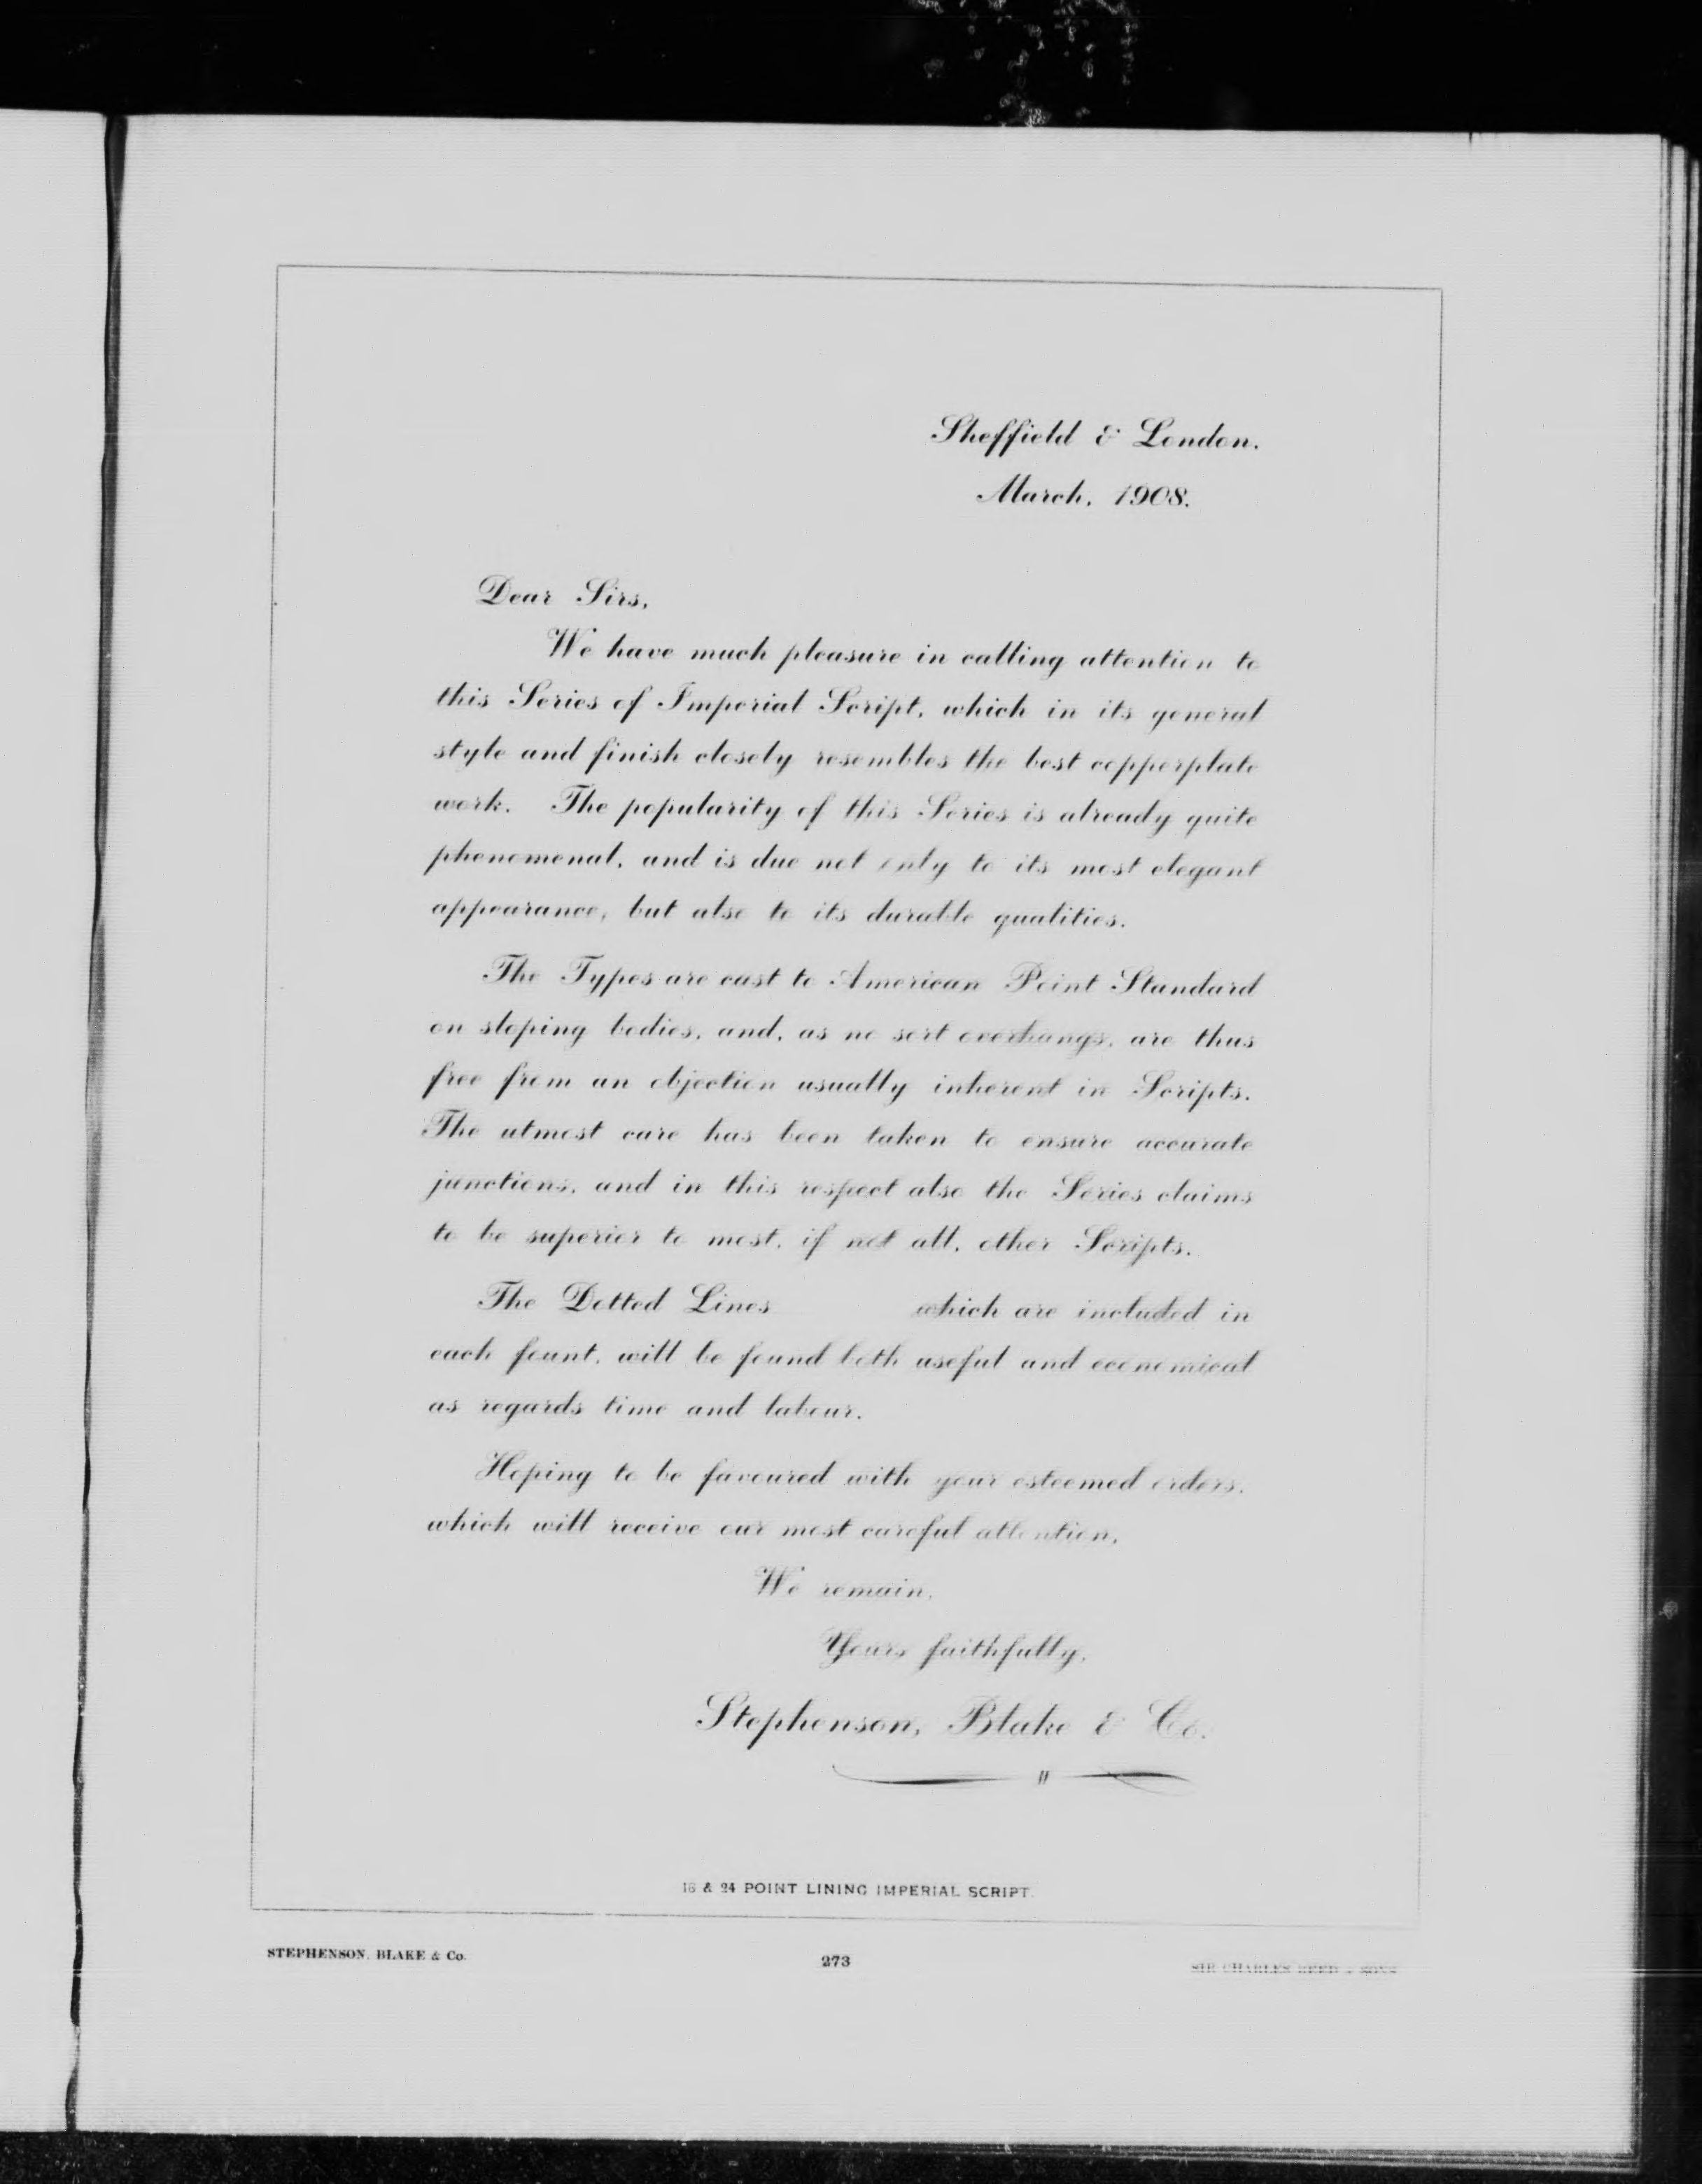 Sheffield & London.
March, 1908.
Dear Sirs,
We have much pleasure in calling attention to
this Series of Imperial Script, which in its general
style and finish closely resembles the best copperplate
work. The popularity of this Series is already quite
phenomenal, and is due not only to its most elegant
appearance, but also to its durable qualities.
The Types are cast to American Point Standard
on sloping bodies, and, as no sort overhangs, are thus
free from an objection usually inherent in Scripts.
The utmost care has been taken to ensure accurate
junctions, and in this respect also the Series claims
to be superior to most, if not all, other Scripts.
The Dotted Lines which are included in
each fount, will be found both useful and economical
as regards time and labour.
Hoping to be favoured with your esteemed orders,
which will receive our most careful attention,
We remain,
Yours faithfully,
Stephenson, Blake & Co.
16 & 24 POINT LINING IMPERIAL SCRIPT.
STEPHENSON, BLAKE & Co.
273
SIR CHARLES REED & SONS